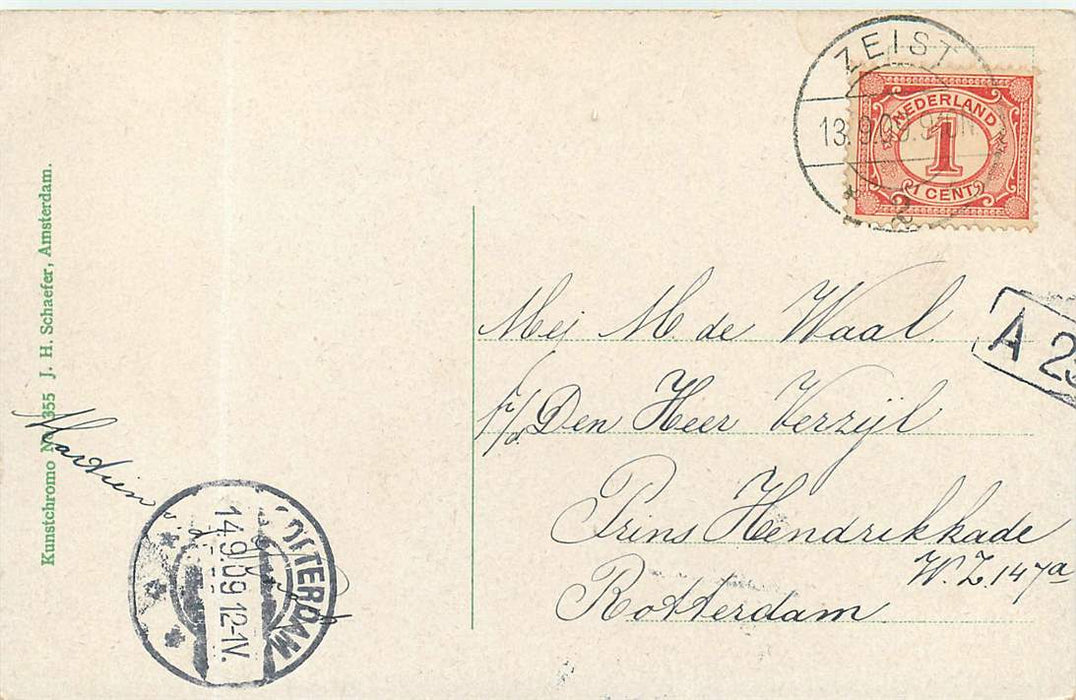 ZEIST
13.9.09
2
NEDERLAND
1
1 CENT
A 23
Mej M. de Waal.
p/a Den Heer Verzijl
Prins Hendrikkade
W.Z. 147a
Rotterdam
Kunstchromo No. 355 J. H. Schaefer, Amsterdam.
Martien
ROTTERDAM
14.9.09 12-1V.